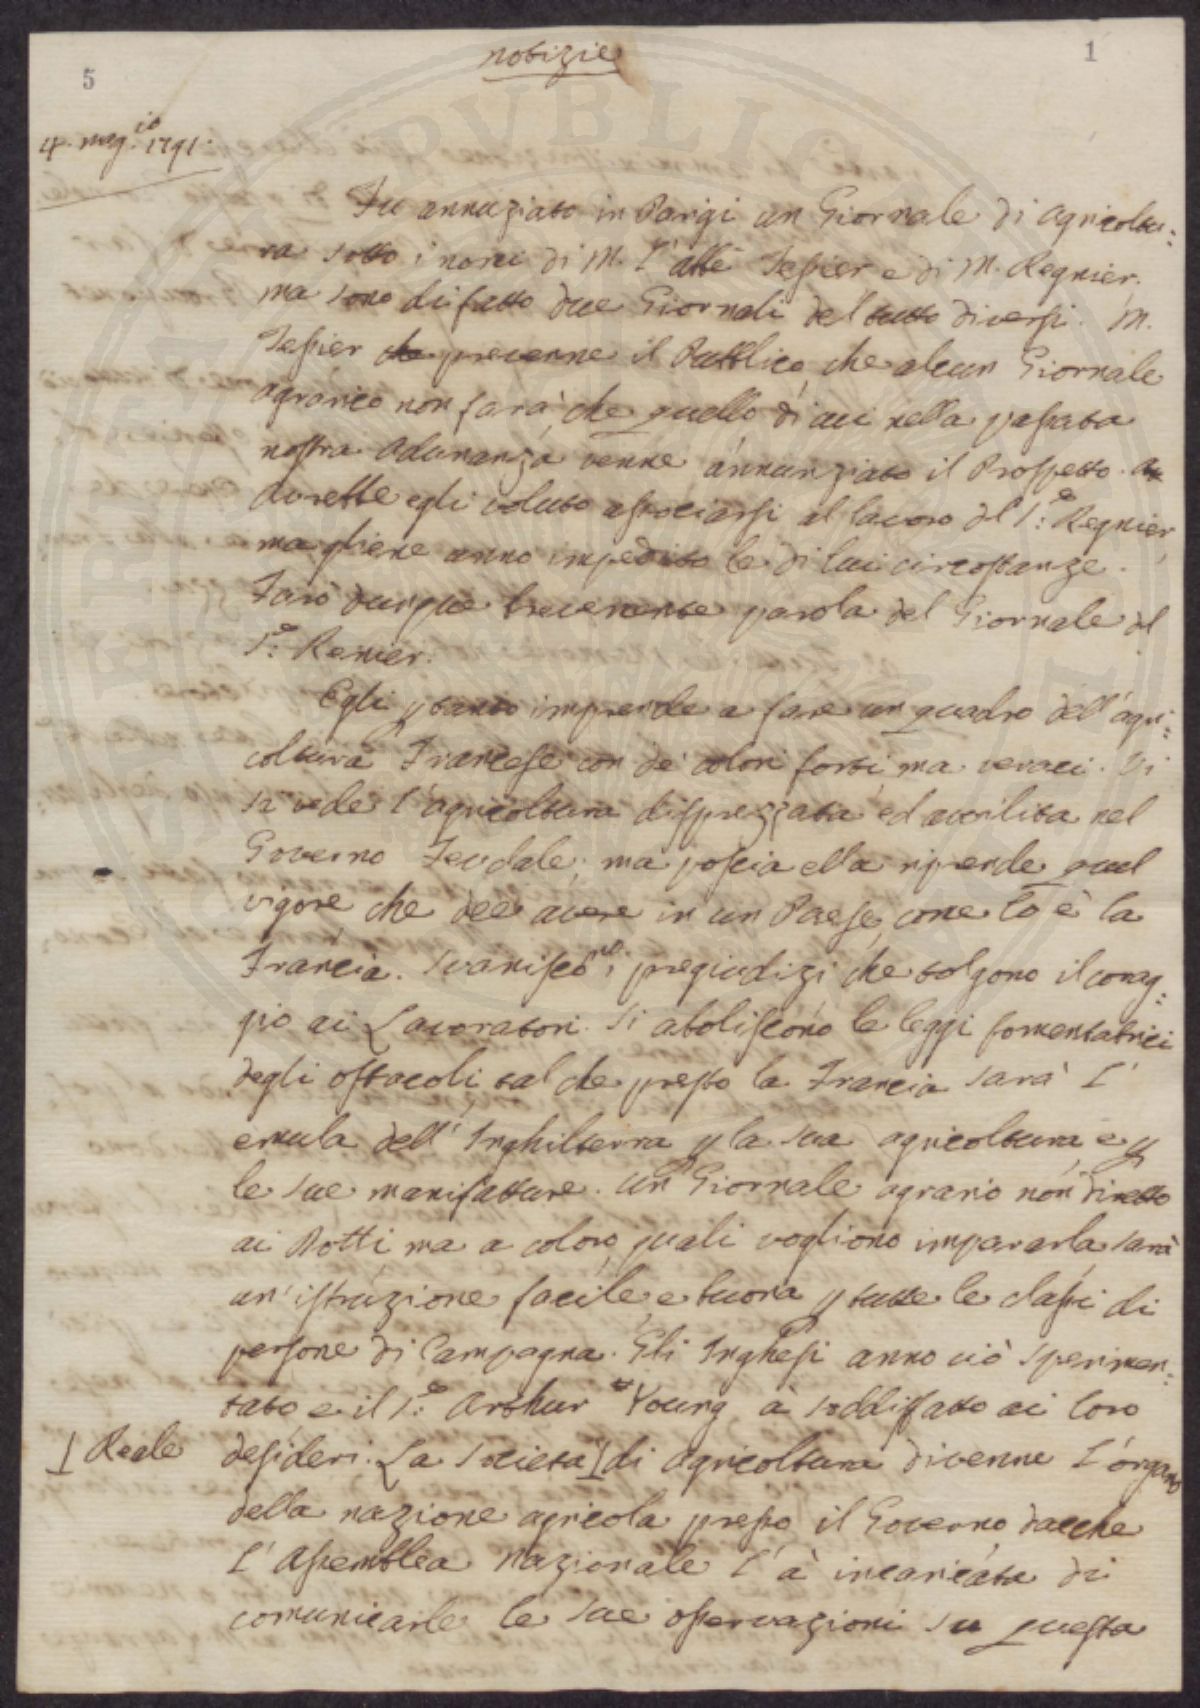 notizie
1
5
4. mag.io 1791.
Fu annuziato in Parigi un Giornale di agricoltu:
ra sotto i nomi di M. l'abbè Tessier e di M. Regnier.
ma sono di fatto due Giornali del tutto diversi. M.
Tessier che prevenne il Pubblico che alcun Giornale
agrario non farà che quello di cui nella passata
nostra adunanza venne annunziato il Prospetto.
Avrebbe egli voluto associarsi al lavoro del S.e Regnier,
ma gliene anno impedito le di lui circostanze.
Farò dunque brevemente parola del Giornale del
S.e Renier.
Egli p tanto imprende a fare un quadro dell'agri:
coltura Francese con de colori forti ma veraci. Vi
si vede l'agricoltura disprezzata ed avvilita nel
Governo Feudale; ma poscia ella riprende quel
vigore che dee avere in un Paese come lo è la
Francia. Svaniscono i pregiudizi che tolgono il corag:
gio ai Lavoratori. Si aboliscono le leggi fomentatrici
degli ostacoli tal che presto la Francia sarà l'
emula dell'Inghilterra p la sua agricoltura e p
le sue manifatture. Un Giornale agrario non diretto
ai Dotti ma a coloro quali vogliono impararla sarà
un'istruzione facile e buona p tutte le classi di
persone di Campagna. Gli Inglesi anno ciò sperimen:
tato e il S.e Arthur Young à soddisfatto ai loro
desideri. La Società di agricoltura divenne l'organo
Reale
della nazione agricola presso il Governo dacche
l'Assemblea Nazionale l'à incaricata di
comunicarle le sue osservazioni su questa